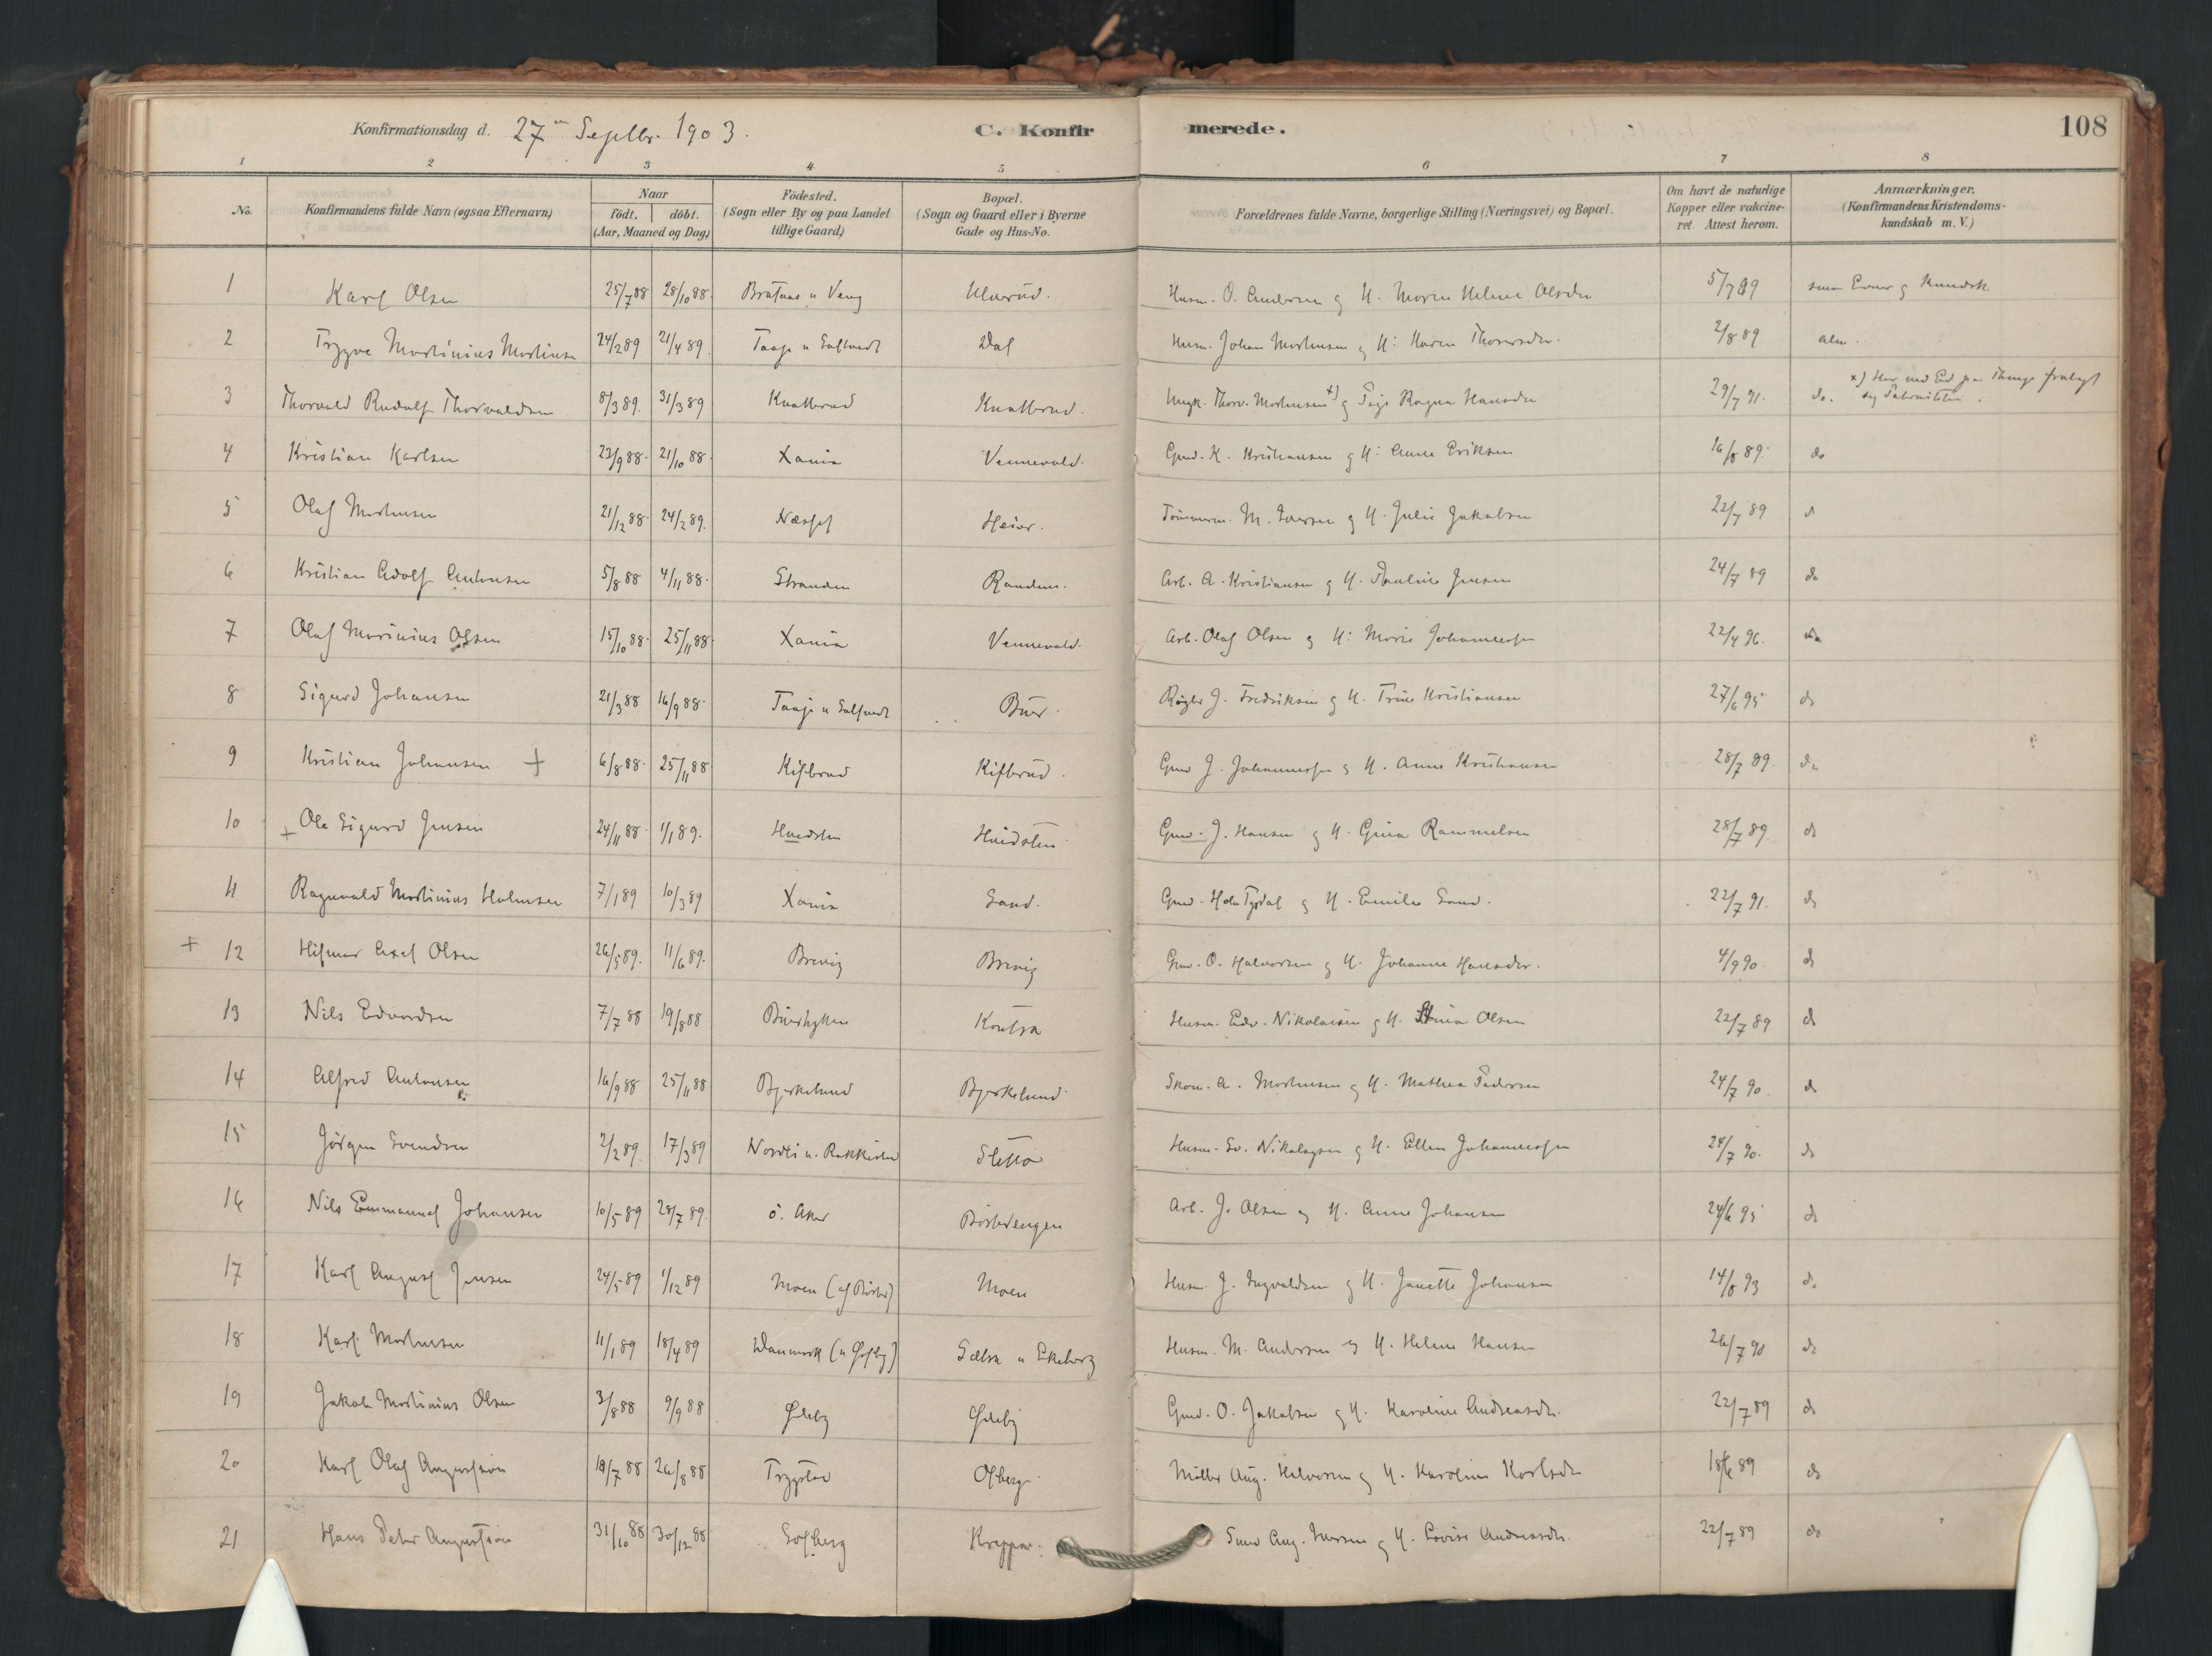 Konfirmationsdag d. 27de Septbr. 1903. C. Konfirmerede. 108
1 2 3 4 5 6 7 8
No. Konfirmandens fulde Navn (ogsaa Efternavn) Naar födt. döbt. (Aar, Maaned og Dag) Födested. (Sogn eller By og paa Landet tillige Gaard) Bopæl. (Sogn og Gaard eller i Byerne Gade og Hus-No. Forældrenes fulde Navne, borgerlige Stilling (Næringsvei) og Bopæl. Om havt de naturlige Kopper eller vakcineret. Attest herom. Anmærkninger. (Konfirmandens Kristendomskundskab m. V.)
1 Karl Olsen 25/7 88 28/10 88. Ulverud. Husm. O. Andersen og H. Maren Helene Olsdr 5/7 89
2 Trygve Martinius Martinsen 24/2 89 21/4 89. Dal Husm. Johan Martinsen og H: Karen 2/8 89 alm.
3 Thorvald Rudolf Thorvaldsen 8/3 89. 31/3 89 Knatterud Knatterud. Ungk. Thorv. Martinsen x) og Pige Ragna Hansdr 29/7 91. do. x) Har med Ed paa Thinge fralagt sig Paterniteten.
4 Kristian Karlsen 23/9 88. 21/10 88. Xania Vennevold. Gmd. K. Kristiansen og H: Anne Eriksen 16/8 89. do
5 Olaf Martinsen 21/12 88. 24/2 89. Næsset Heier. Tömmerm. M. Iversen og H. Julie Jakobsen 22/7 89 d
6 Kristian Adolf Antonsen 5/8 88 4/11 88. Stranden Randem. Arb. A. Kristiansen og H. Pauline Jensen 24/7 89 do
7 Olaf Marinius Olsen 15/10 88. 25/11 88. Xania Vennevold. Arb. Olaf Olsen og H: Marie Johannessen 22/4 96. do
8 Sigurd Johansen 21/3 88 16/9 88. Taaje u Buer. J. Fredriksen og H. Trine Kristiansen 27/6 95 do
9 Kristian Johansen + 6/8 88. 25/11 88 Kislerud Kislerud. Gmd J. Johannessen og H. Anne Kristiansen 28/7 89. do
10 + Ole Sigurd Jensen 24/11 88. 1/1 89. Hvidsten Hvidsten Gmd. J. Hansen og H. Gina Rammelsen 28/7 89. do
11 Ragnvald Martinius Holmsen 7/1 89 10/3 89 Xania Sand. Gmd. og H. Emilie Sand. 22/7 91. do
+ 12 Hjlmar Axel Olsen 26/5 89. 11/6 89. Brevig Brevig Gmd. O. Halvorsen og H. Johanne Hansdr. 4/9 90. do
13 Nils Edvardsen 7/7 88 19/8 88 Kontra Husm. Edv. Nikolaisen og H. Olsen 22/7 89 do
14 Alfred Antonsen 16/9 88 25/11 88 Bjerkelund Bjerkelund Skom. A. Martinsen og H. Mathea Pedersen 24/7 90. do
15 Jörgen Svendsen 2/2 89. 17/3 89 Nordli u. Rakkestad Sletta Husm. Sv. Nikolaysen og H. Ellen Johannessen 24/7 90. do
16 Nils Emmanuel Johansen 10/5 89 28/7 89. ö. Aker Börterengen Arb. J. Olsen og H. Anne Johansen 24/6 95 do
17 Karl August Jensen 24/5 89 1/12 89 Moen Moen Husm. J. Ingvaldsen og H. Janette Johansen 14/8 93 do
18 Karl Martinsen 11/1 89 18/4 89 Danmark Sletta u Ekeberg Husm. M. Andersen og H. Helene Hansen 26/7 90 do
19 Jakob Martinius Olsen 3/8 88 9/9 88 Ödeby Ödeby Gmd. O. Jakobsen og H. Karoline Andreasdr. 22/7 89 do
20 Karl Olaf Augustson 18/7 88 26/8 88 Trygstad Osberg Möller Aug. Halvorsen og H. Karoline Karlsdr 18/6 89 do
21 Hans Peter Augustson 31/10 88 30/12 88 Solberg Kroppa. Smed Aug. Iversen og H. Lovise Andreasdr. 22/7 89 do